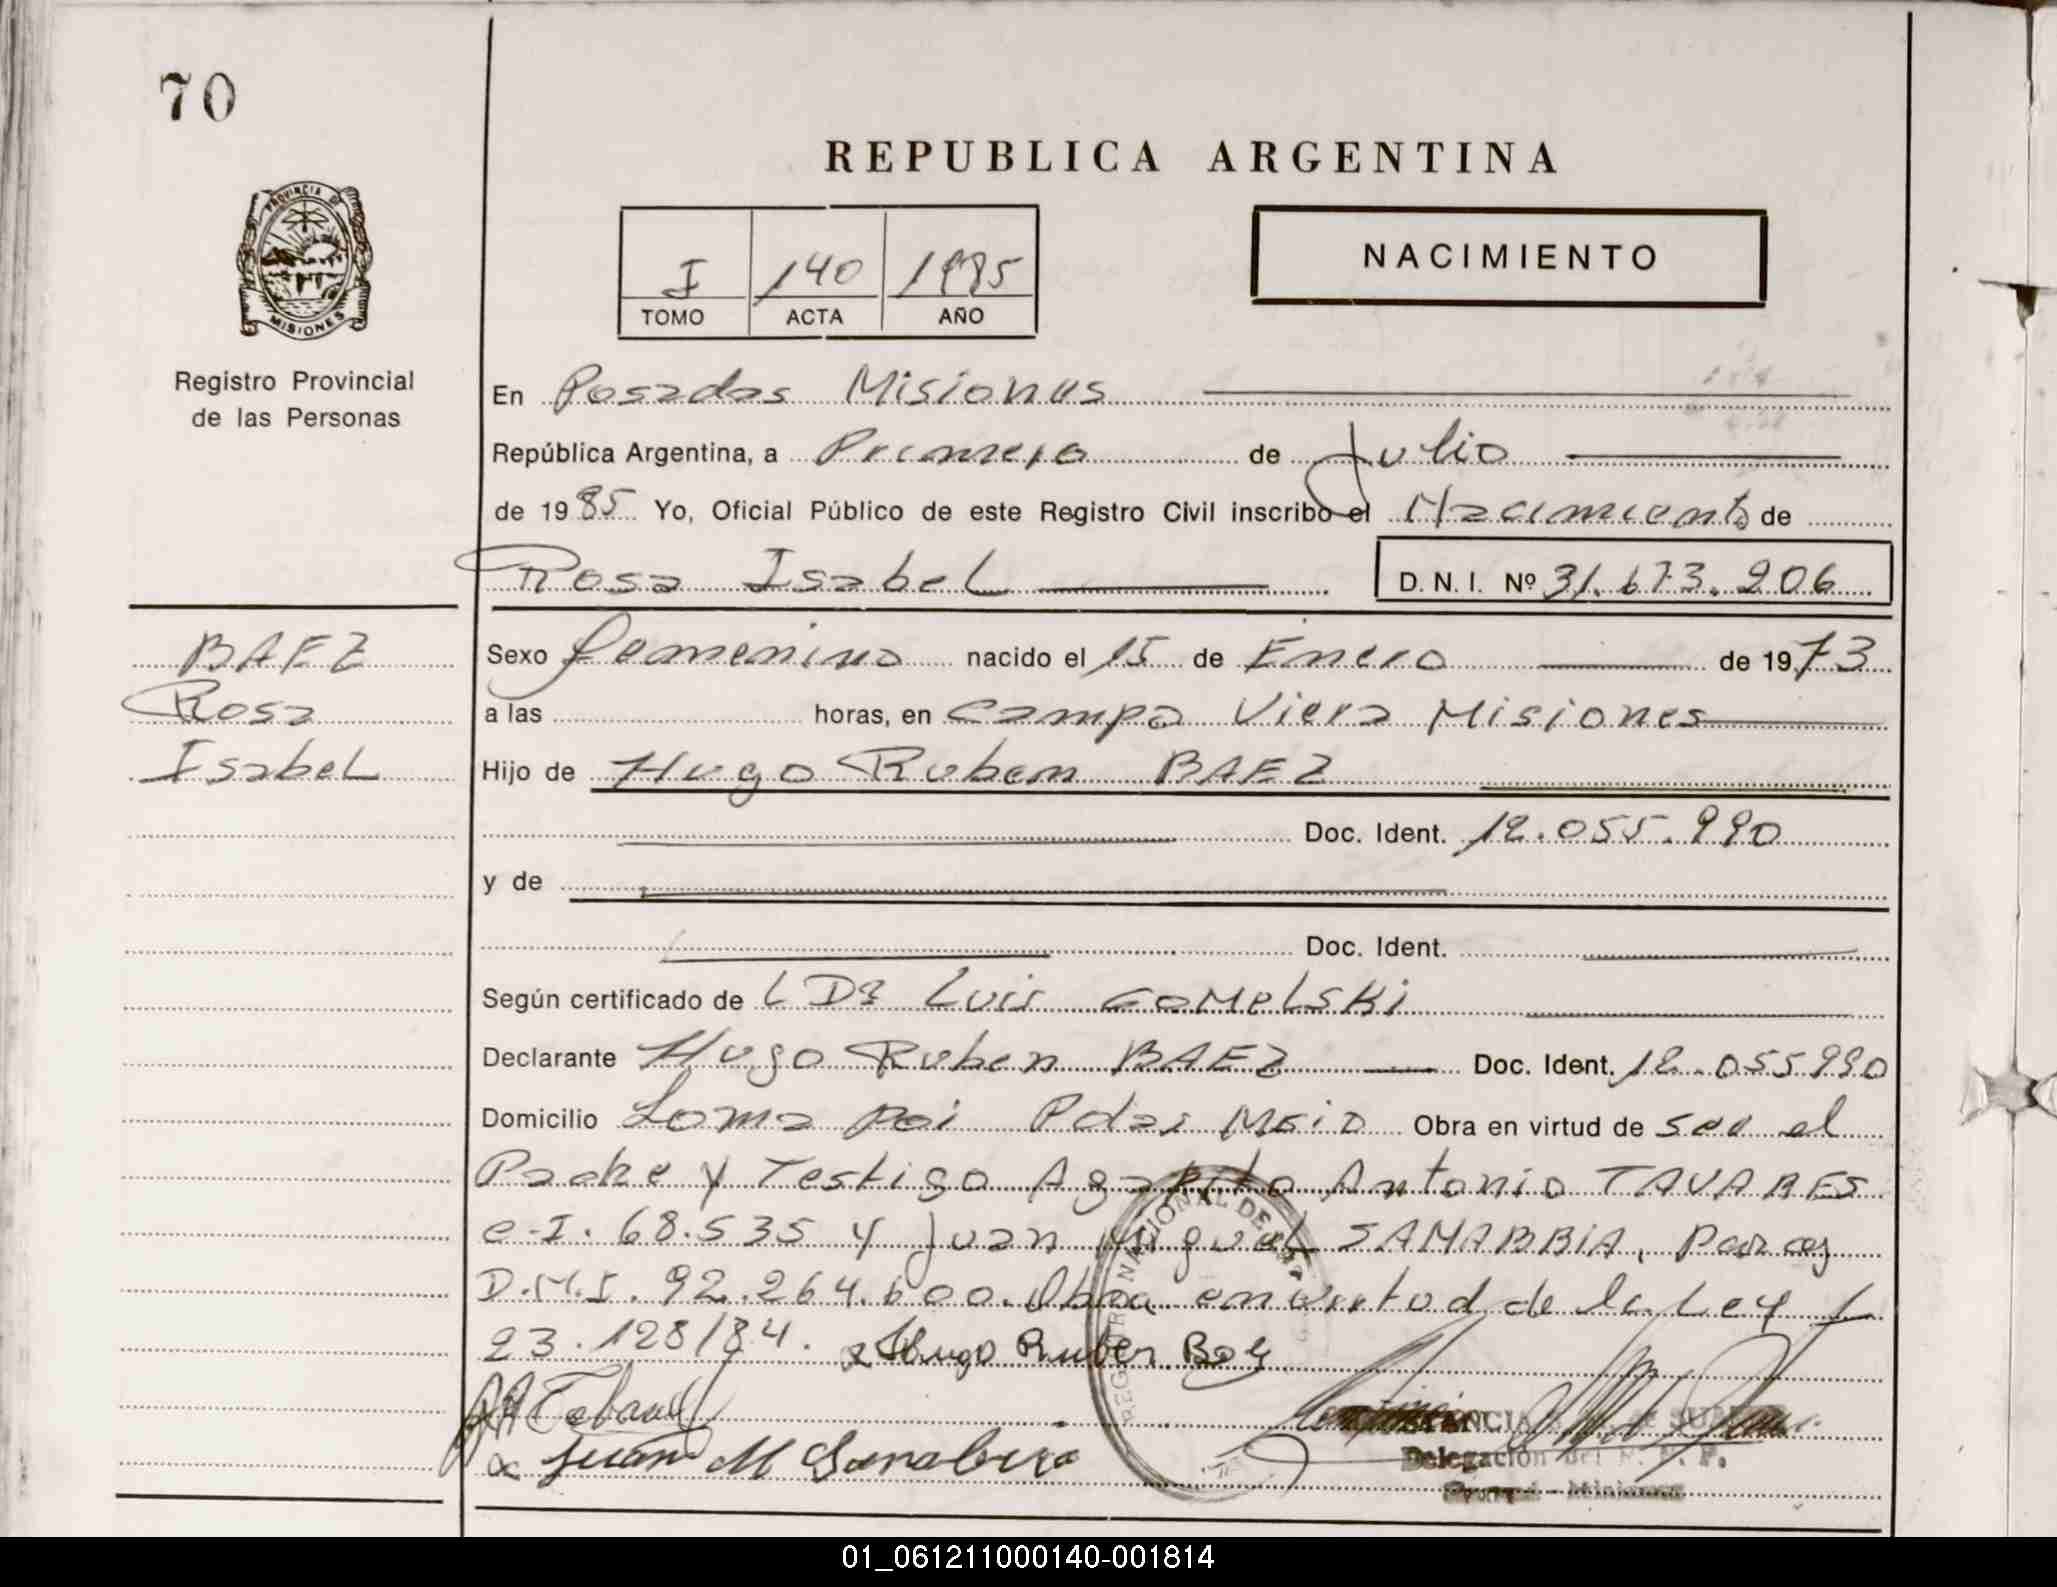 70
REPUBLICA ARGENTINA
PROVINCIA DE
MISIONES
Registro Provincial
de las Personas
I 140 1985
TOMO ACTA AÑO
NACIMIENTO
En Posadas Misiones
República Argentina, a Primero de Julio
de 1985 Yo, Oficial Público de este Registro Civil inscribo el Nacimiento de
Rosa Isabel D. N. I. Nº 31.673.206
BAEZ
Rosa
Isabel
Sexo femenino nacido el 15 de Enero de 1973
a las horas, en Campo Viera Misiones
Hijo de Hugo Ruben BAEZ
Doc. Ident. 12.055.990
y de
Doc. Ident.
Según certificado de Luis GOMELSKI
Declarante Hugo Ruben BAEZ Doc. Ident. 12.055990
Domicilio Loma Poi Pdas Obra en virtud de ser el
Padre y Testigo Agapito Antonio TAVARES
C.I. 68.535 y Juan Miguel SAMABBIA, Parag
D.N.I. 92.264.600. Obra en virtud de la Ley
23.128/84. x Hugo Ruben
x Juan M Sanabria
REGISTRO NACIONAL DE
Delegación del R. P. P.
01_061211000140-001814